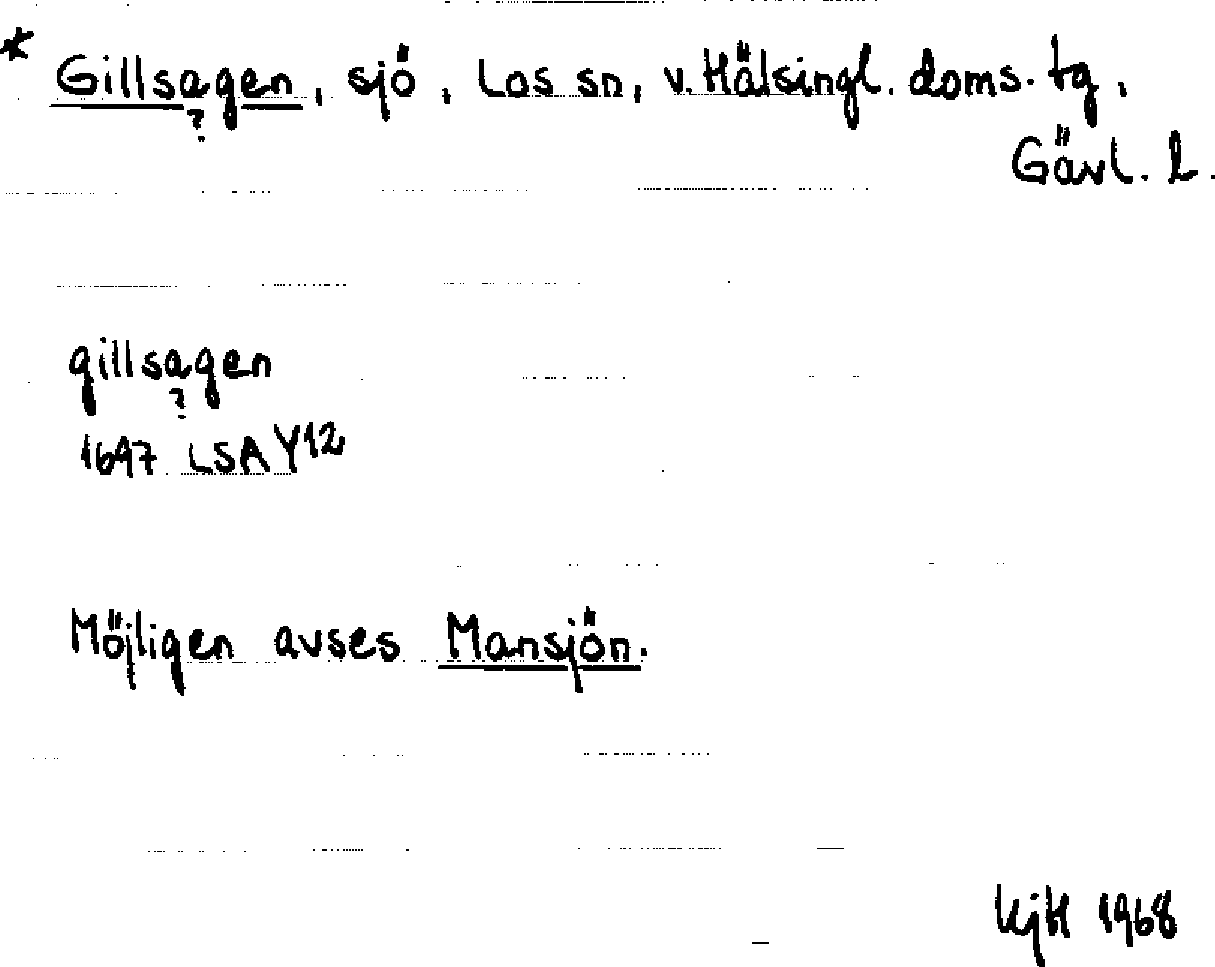 * Gillsagen, sjö, Los sn, v. Hälsingl. doms. tg,
?
Gävl. l.
gillsagen
?
1697 LSA Y12
Möjligen avses Mansjön.
KjH 1968